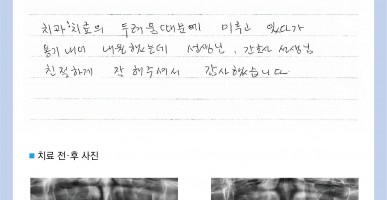 치과 치료의 두려움 때문에 미루고 있다가
용기내어 내원했는데 선생님, 간호사 선생님
친절하게 잘 해주셔서 감사했습니다.
■ 치료 전·후 사진